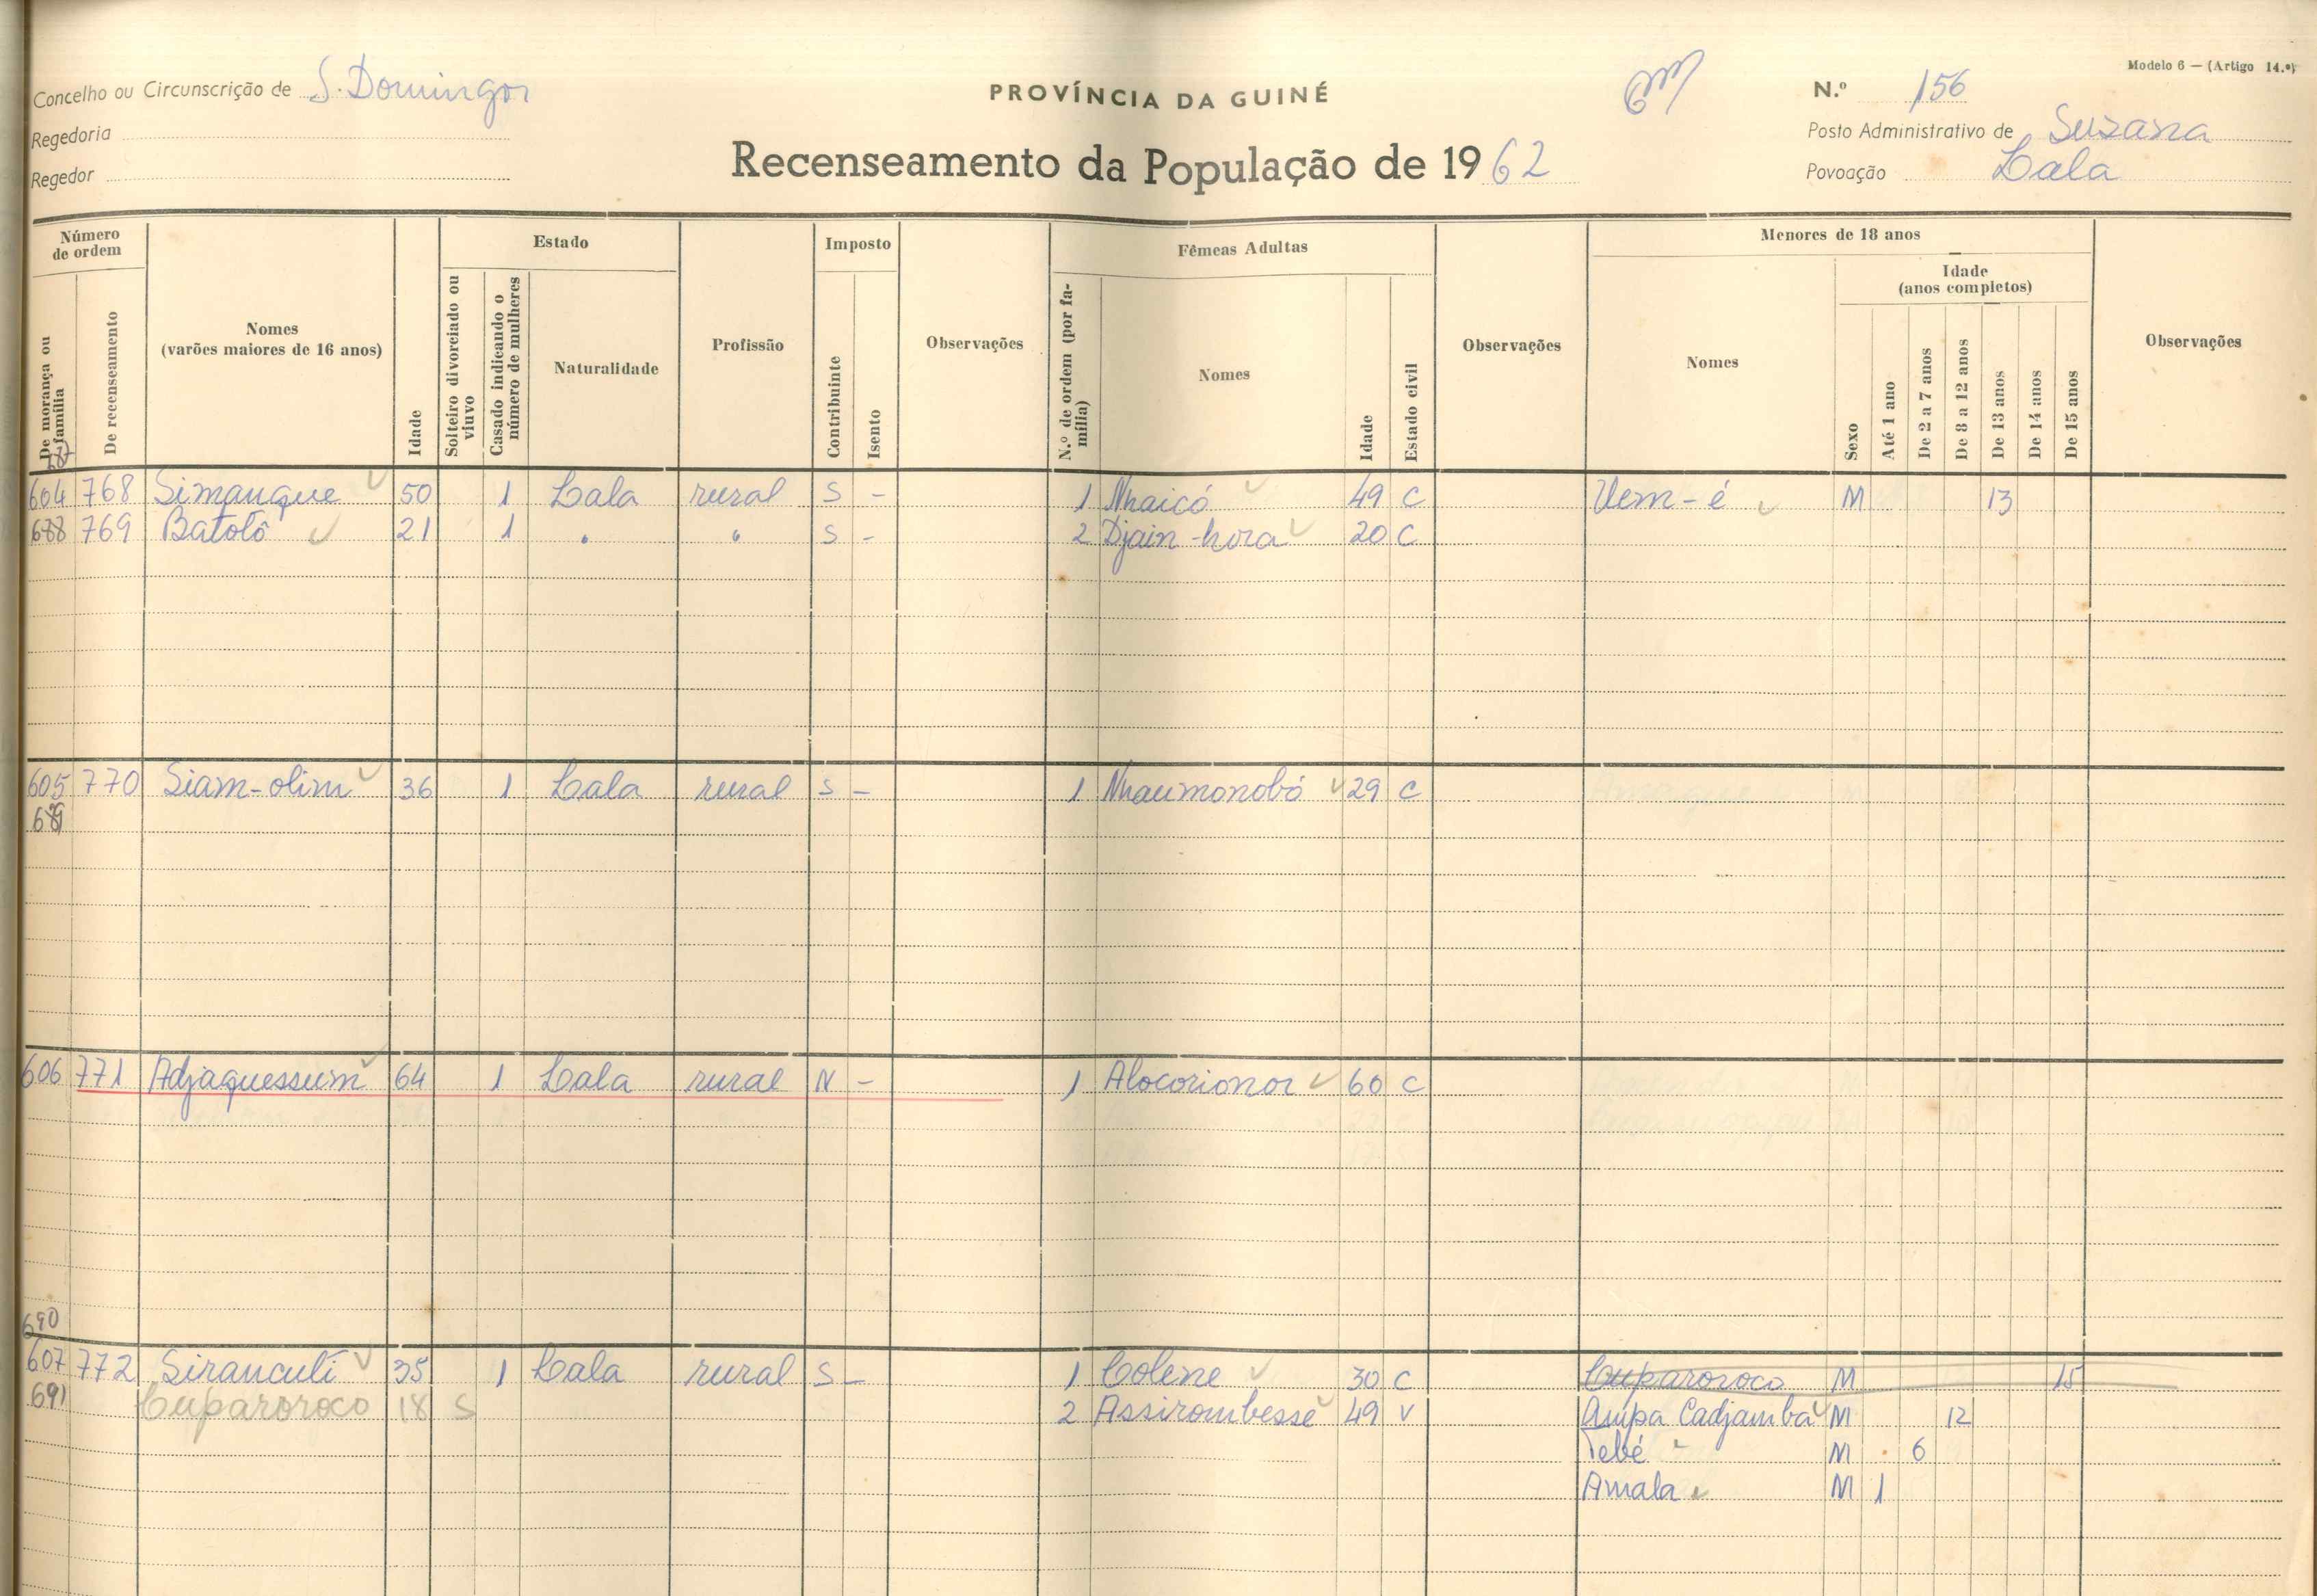 Modelo 6 — (Artigo 14.º)
Concelho ou Circunscrição de S. Domingos
PROVÍNCIA DA GUINÉ
N.º 156
Regedoria
Posto Administrativo de Suzana
Regedor
Recenseamento da População de 1962
Povoação Lala
Número de ordem
De morança ou família
De recenseamento
Nomes (varões maiores de 16 anos)
Idade
Estado
Solteiro divorciado ou viuvo
Casado indicando o número de mulheres
Naturalidade
Profissão
Imposto
Contribuinte
Isento
Observações
Fêmeas Adultas
N.º de ordem (por família)
Nomes
Idade
Estado civil
Observações
Menores de 18 anos
Nomes
Sexo
Idade (anos completos)
Até 1 ano
De 2 a 7 anos
De 8 a 12 anos
De 13 anos
De 14 anos
De 15 anos
Observações
604 768 Simanque 50 1 Lala rural S - 1 Nhaicó 49 C Uem-é M 13
688 769 Batolô 21 1 " " S - 2 Djain-hora 20 C
605 770 Siam-olim 36 1 Lala rural S - 1 Nhaumonobó 29 C
689
606 771 Adjaquessum 64 1 Lala rural N - 1 Alocorionor 60 C
690
607 772 Siranculi 35 1 Lala rural S - 1 Colene 30 C Cuparoroco M 15
691 Cuparoroco 18 S 2 Assirombesse 49 V Ampa Cadjamba M 12
Tebé M 6
Amala M 1